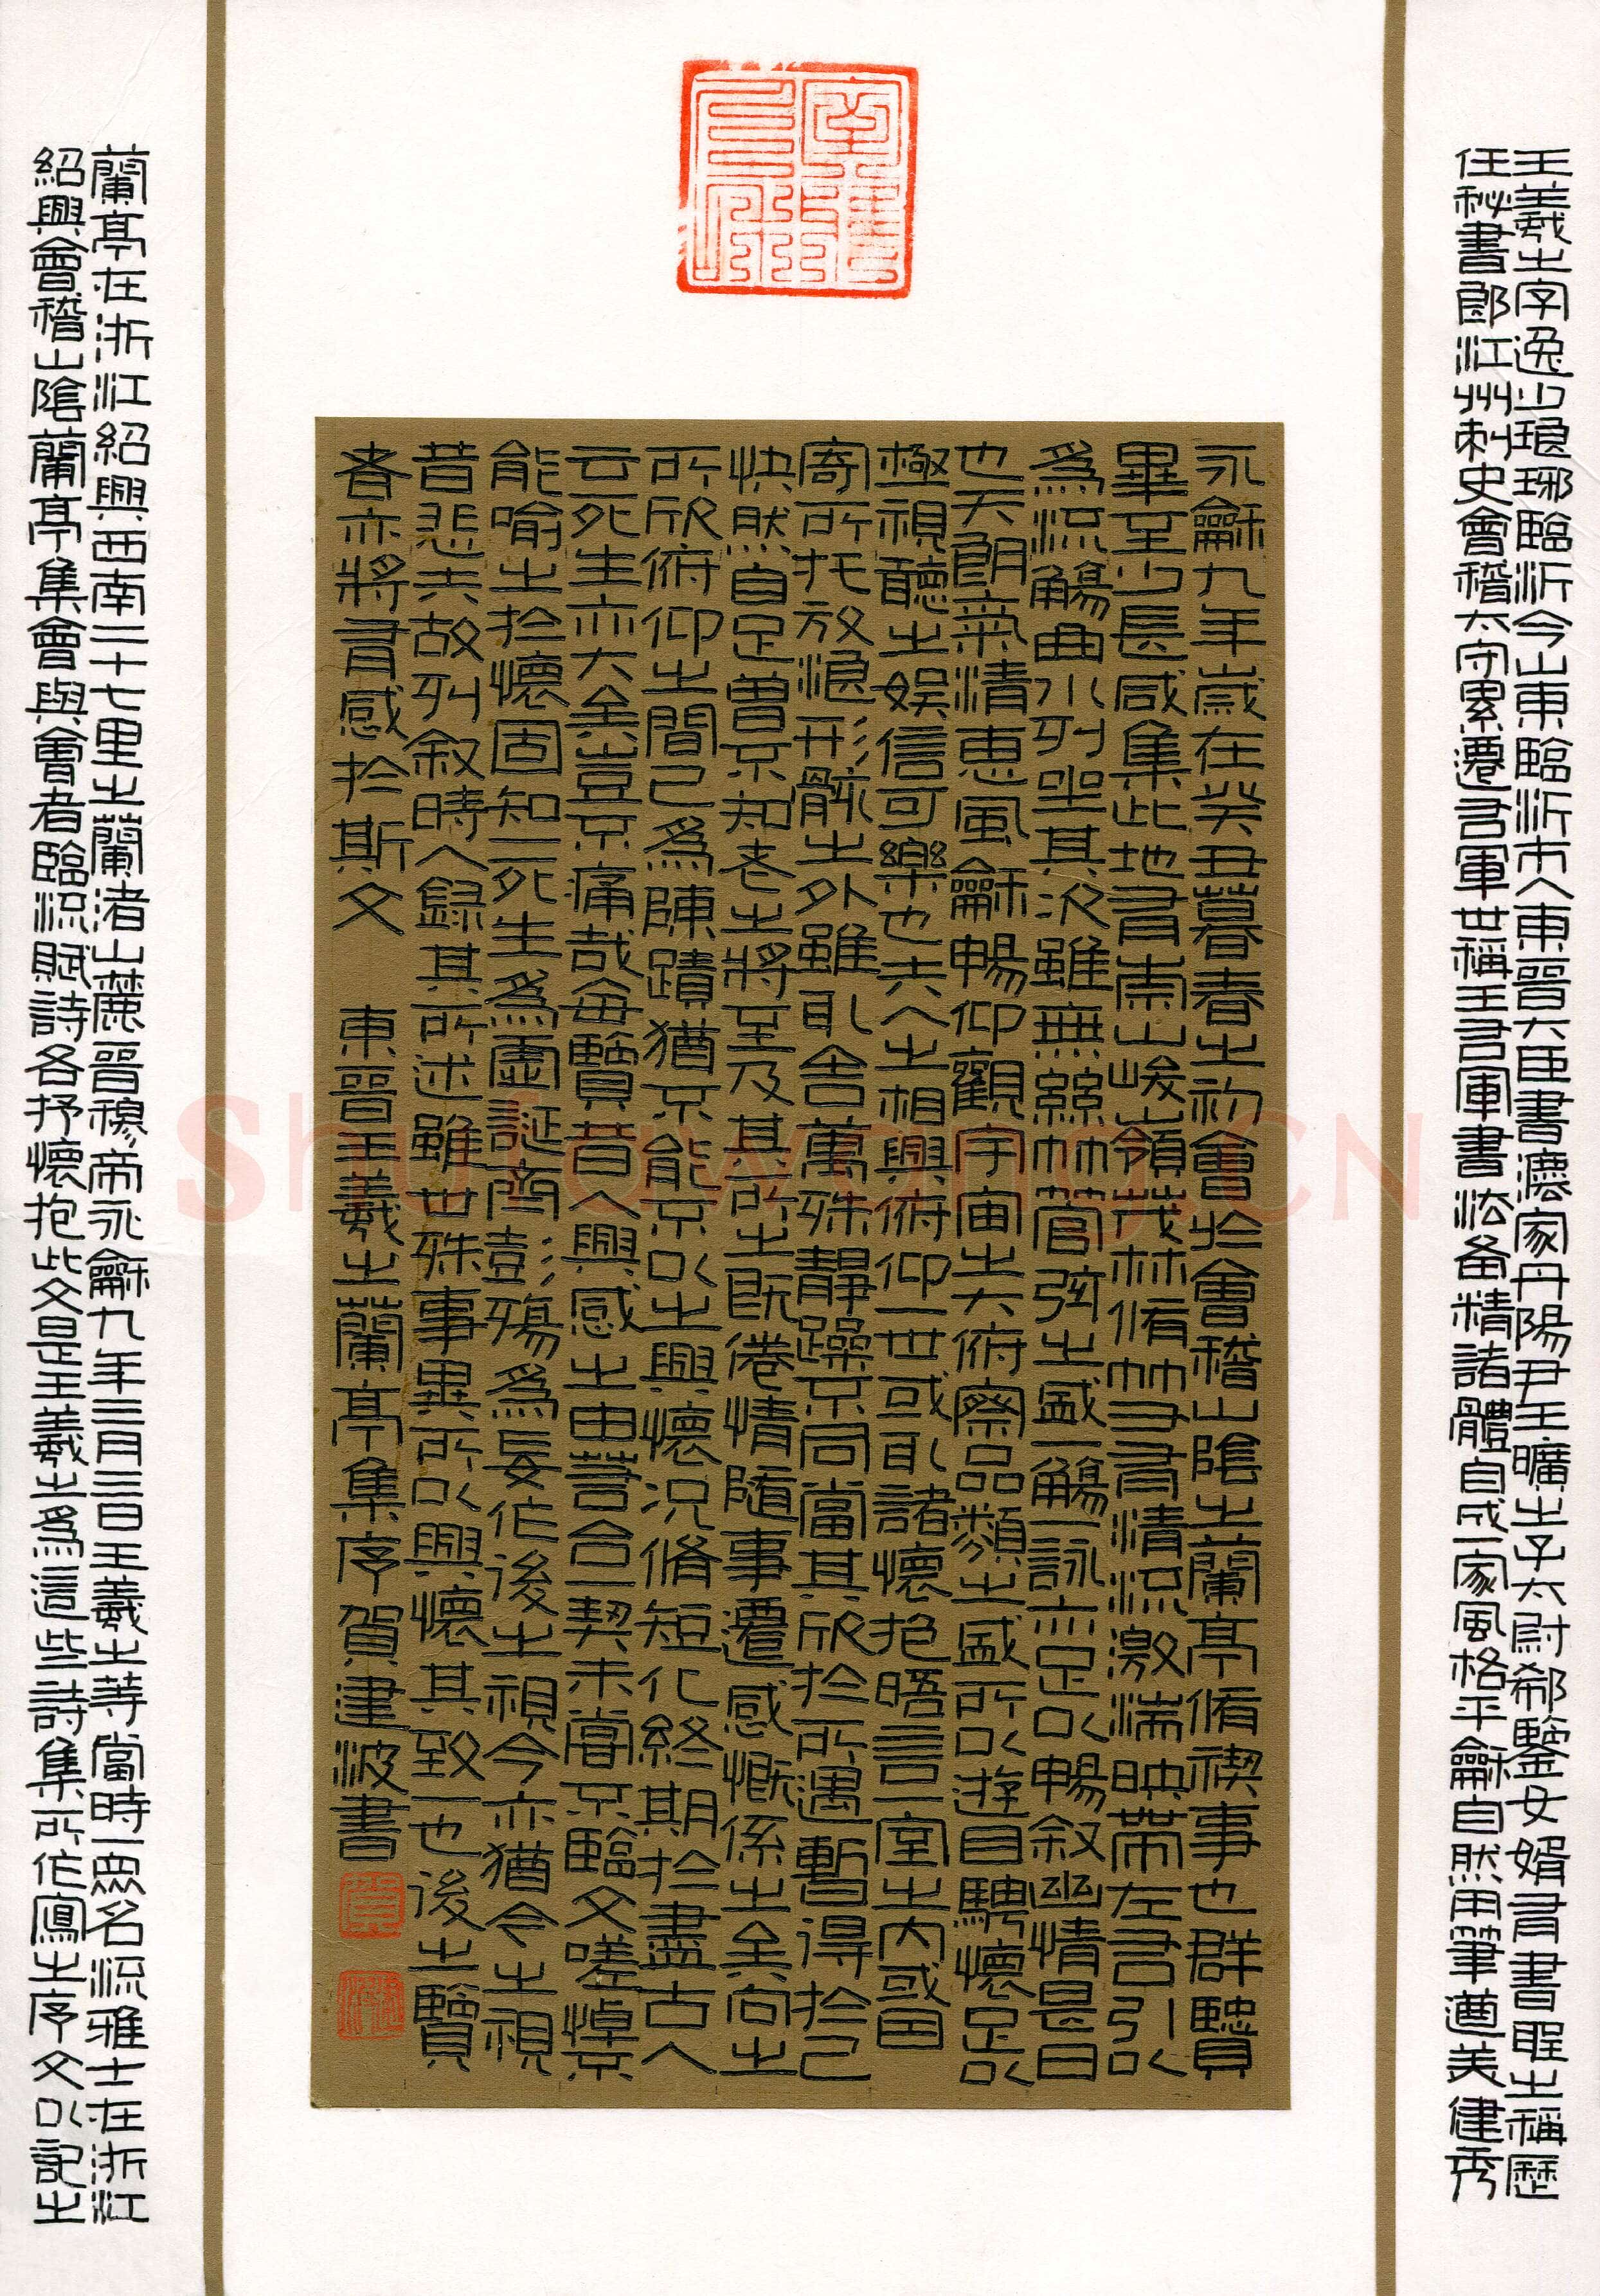 王羲之字逸少琅琊臨沂今山東臨沂市人東晉大臣書灋家丹陽尹王曠之子太尉郗鑒女婿有書聖之稱歷
任秘書郎江州刺史會稽太守累遷右軍世稱王右軍書法备精諸體自成一家風格平龢自然用筆遒美健秀
永龢九年歲在癸丑暮春之初會於會稽山陰之蘭亭脩禊事也群賢
畢至少長咸集此地有崇山峻嶺茂林脩竹又有清流激湍映帶左右引以
為流觴曲水列坐其次雖無絲竹管弦之盛一觴一詠亦足以暢敘幽情是日
也天朗氣清惠風龢暢仰觀宇宙之大俯察品類之盛所以遊目騁懷足以
極視聽之娛信可樂也夫人之相與俯仰一世或取諸懷抱晤言一室之內或因
寄所托放浪形骸之外雖取舍萬殊靜躁不同當其欣於所遇暫得於己
快然自足曾不知老之將至及其所之既倦情隨事遷感慨係之矣向之
所欣俯仰之間已為陳蹟猶不能不以之興懷況脩短化終期於盡古人
云死生亦大矣豈不痛哉每覽昔人興感之由若合一契未嘗不臨文嗟悼不
能喻之於懷固知一死生為虛誕齊彭殤為妄作後之視今亦猶今之視
昔悲夫故列敘時人錄其所述雖世殊事異所以興懷其致一也後之覽
者亦將有感於斯文 東晉王羲之蘭亭集序 賀建波書
蘭亭在浙江紹興西南二十七里之蘭渚山麓晉穆帝永龢九年三月三日王羲之等當時一眾名流雅士在浙江
紹興會稽山陰蘭亭集會與會者臨流賦詩各抒懷抱此文是王羲之為這些詩集所作寫之序文以記之
Shufawang.CN